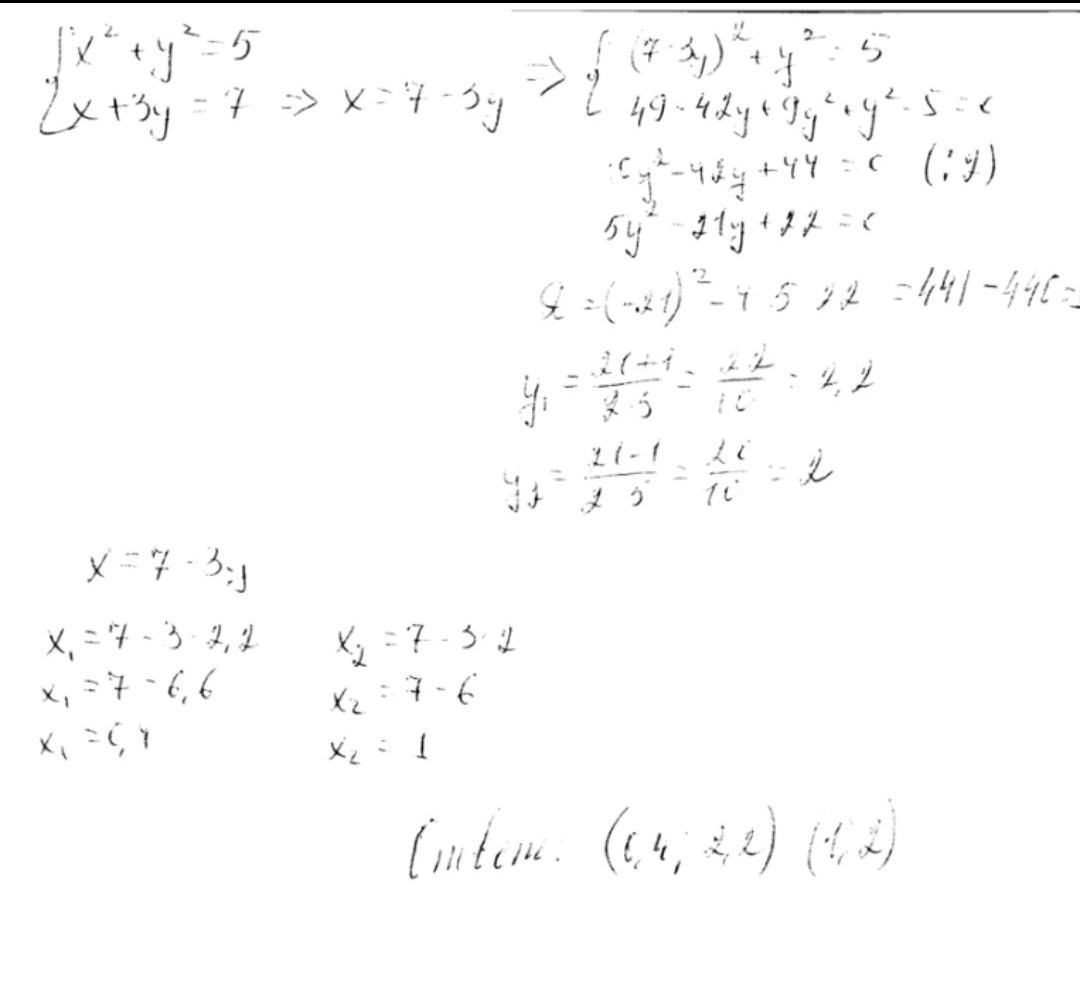 { x² + y² = 5
x + 3y = 7 => x = 7 - 3y => { (7-3y)² + y² = 5
49 - 42y + 9y² + y² - 5 = 0
10y² - 42y + 44 = 0 (:2)
5y² - 21y + 22 = 0
D = (-21)² - 4·5·22 = 441 - 440 = 1
y₁ = (21+1)/(2·5) = 22/10 = 2,2
y₂ = (21-1)/(2·5) = 20/10 = 2
x = 7 - 3y
x₁ = 7 - 3·2,2
x₁ = 7 - 6,6
x₁ = 0,4
x₂ = 7 - 3·2
x₂ = 7 - 6
x₂ = 1
Ответ: (0,4; 2,2) (1; 2)